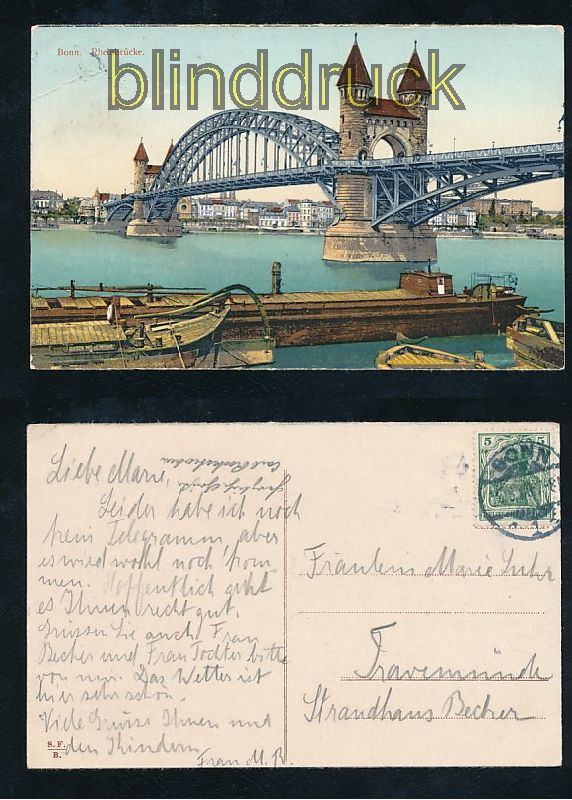 Bonn. Rheinbrücke.
blinddruck
Liebe Marie,
Leider habe ich noch
kein Telegramm, aber
es wird wohl noch kom
men. Hoffentlich geht
es Ihnen recht gut.
Grüssen Sie auch Frau
Becher und Frau Tochter bitte
von mir. Das Wetter ist
hier sehr schön.
Viele Grüsse Ihnen und
den Kindern
Frau M. B.
S. F.
B.
5 5
BONN
Fräulein Marie
Travemünde
Strandhaus Becher